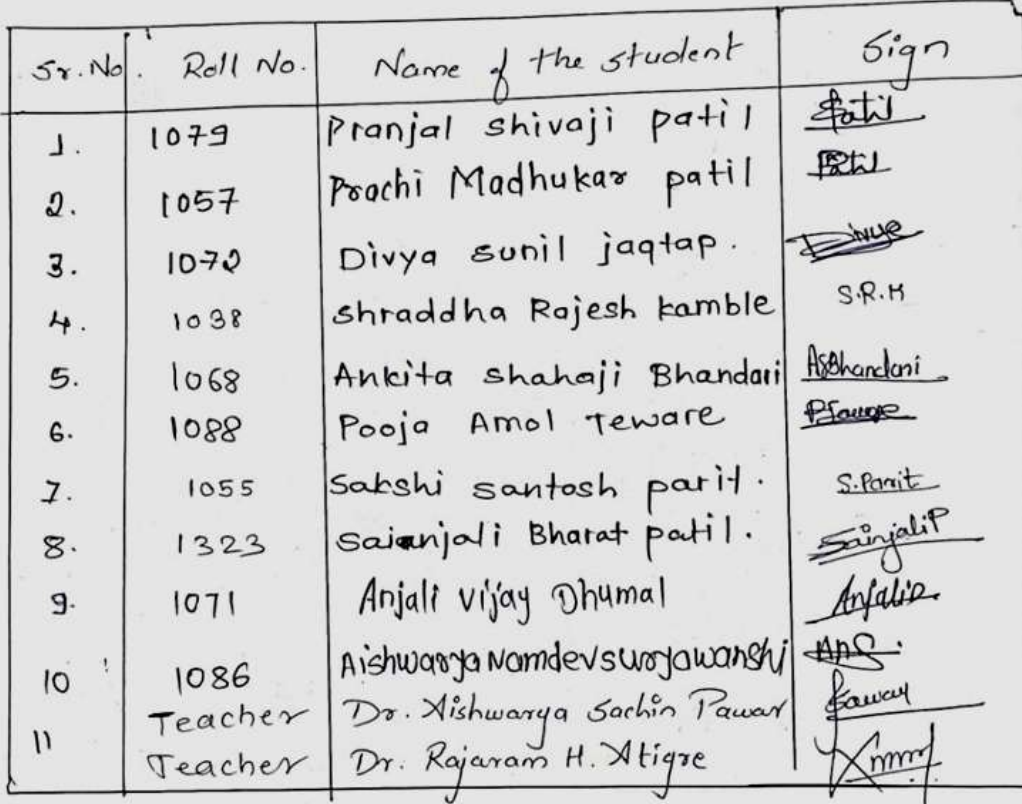 Sr. No. Roll No. Name of the student Sign
1. 1079 Pranjal shivaji patil Patil
2. 1057 Prachi Madhukar patil Patil
3. 1072 Divya sunil jagtap. Divya
4. 1038 shraddha Rajesh kamble S.R.K
5. 1068 Ankita shahaji Bhandari ASBhandari
6. 1088 Pooja Amol Teware
7. 1055 Sakshi santosh parit. S.Parit
8. 1323 saianjali Bharat patil. SainjaliP
9. 1071 Anjali vijay Dhumal AnjaliD.
10 1086 Aishwarya Namdev suryawanshi ANS.
Teacher Dr. Aishwarya Sachin Pawar
11
Teacher Dr. Rajaram H. Atigre